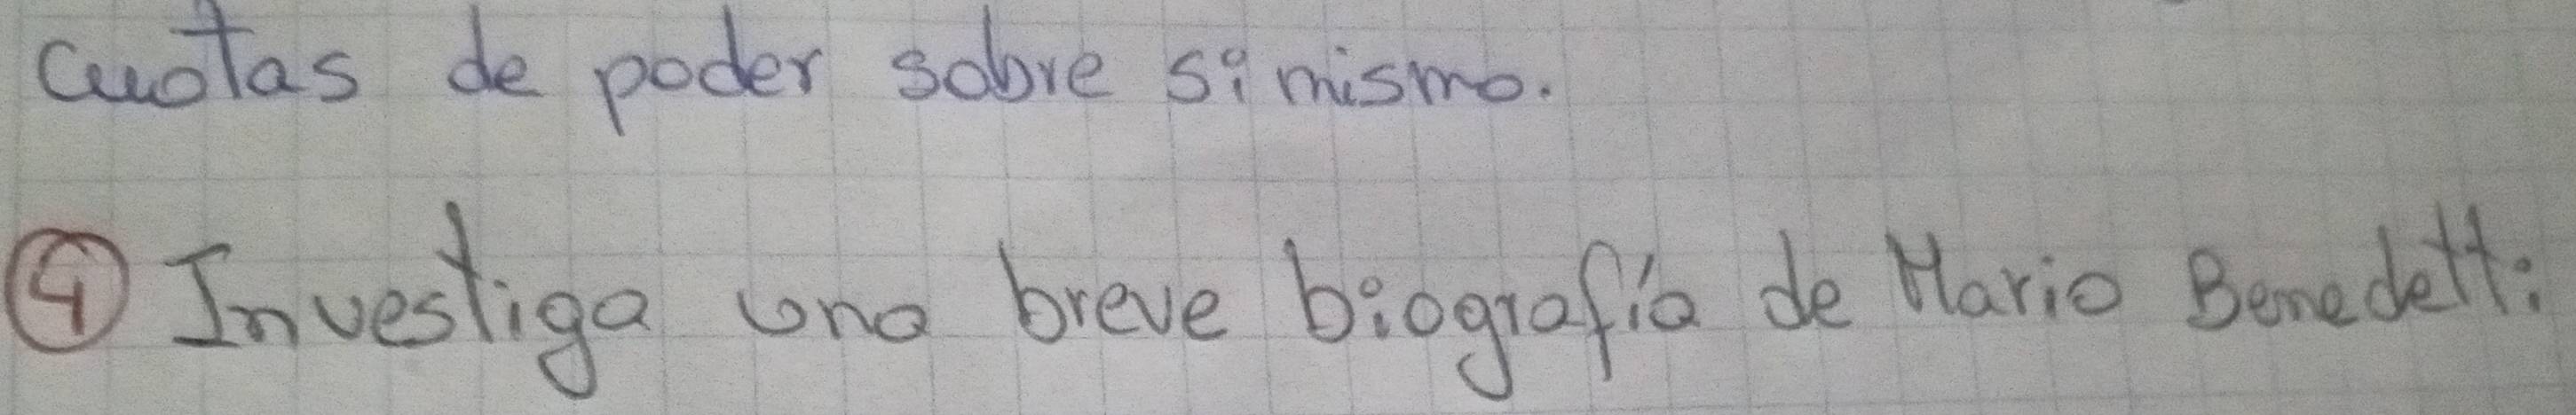 cuotas de poder sobre si mismo.
④ Investiga una breve biografía de Mario Benedetti